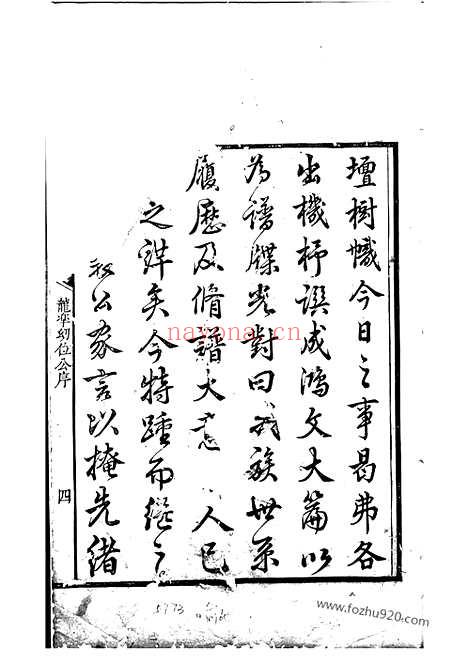 壇樹幟今日之事曷弗各
出機杼譔成鴻文大篇以
為譜牒光對曰我族世系
履歷及脩譜大志 人已
之詳矣今特踵而繼之
叙公家言以掩先緒
龍準幼位公序
四
nayonai.cn
5773
www.fozhu920.com